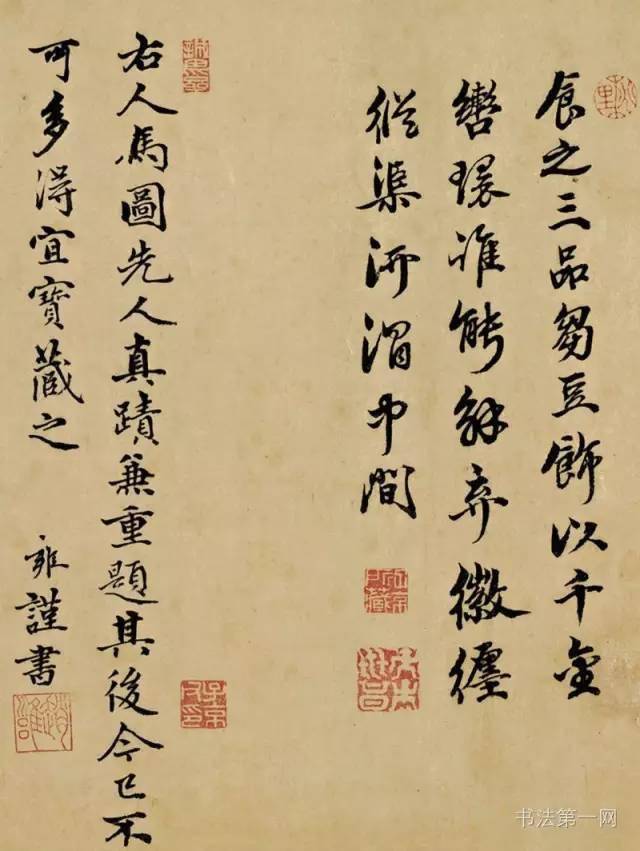 食之三品芻豆飾以千金
轡環誰能解弃徽纆
從渠汧渭中間
右人馬圖先人真蹟兼重題其後今已不
可多得宜寶藏之
雍謹書
趙雍
书法第一网